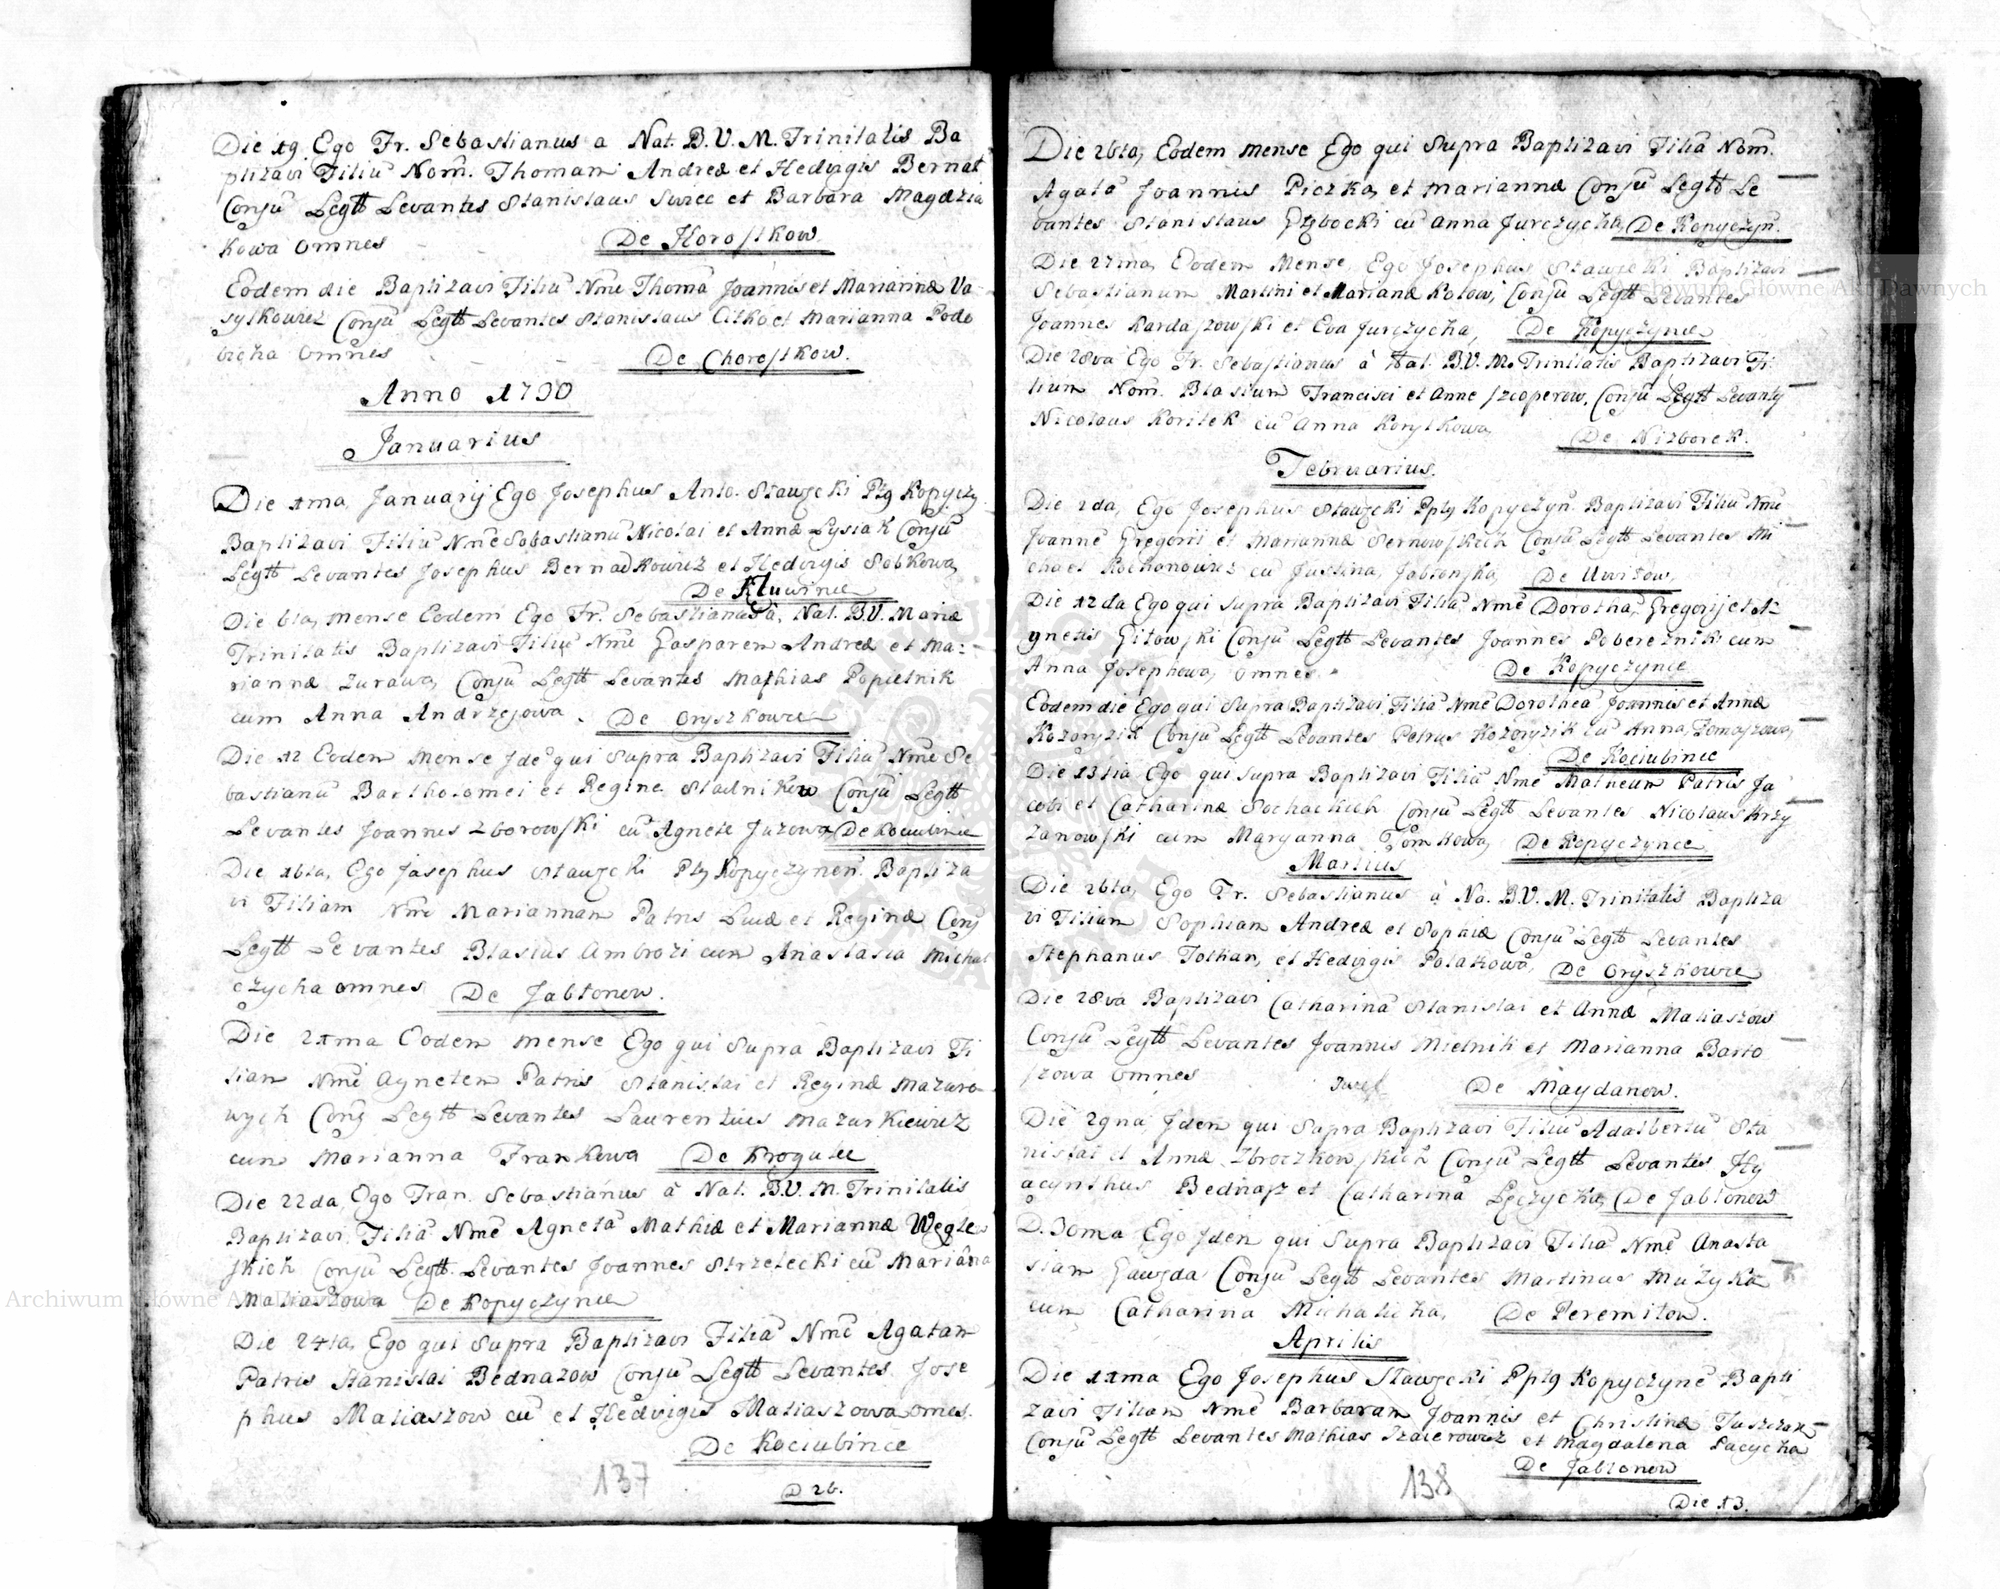 Die 19. Ego Fr. Sebastianus a Nat. B.V.M. Trinitatis Ba
ptizavi Filiũ Nom. Thomam Andreæ et Hedvigis Bernat
Conjũ Legtt Levantes Stanislaus Swiec et Barbara Magdzia
kowa omnes De Horostkow.
Eodem die Baptizavi Filiũ Nme Thomã Joannis et Mariannæ Va
sylkowicz Conjũ Legtt Levantes Stanislaus Citko et Marianna Podo
omnes De Chorostkow.
Anno 1790
Januarius
Die 1ma Januarij Ego Josephus Anto. Staw̄ski Kopyczy
Baptizavi Filiũ Nme Sebastianũ Nicolai et Annæ Lysiak Conjũ
Legtt Levantes Josephus Bernadkowicz et Hedvigis Sobkowa
De Kluwince
Die 6ta mense Eodem Ego Fr. Sebastianus â Nat. B.V. Mariæ
Trinitatis Baptizavi Filiũ Nme Gasparem Andreæ et Ma-
riannæ Zurawa Conjũ Legtt Levantes Mathias Popielnik
cum Anna Andrzejowa. De Oryszkowce
Die 12 Eodem Mense Jdē qui Supra Baptizavi Filiũ Nme Se
bastianũ Bartholomei et Regine Stadnikow Conjũ Legtt
Levantes Joannes Zborowski cũ Agnete Juzowa De Kociubince
Die 16ta, Ego Josephus Kopyczynen. Baptiza
vi Filiam Nme Mariannam Patris Lucæ et Reginæ Conj
Legtt Levantes Blasius Ambrozi cum Anastasia Michal
czycha omnes De Jablonow.
Die 21ma Eodem mense Ego qui Supra Baptizavi Fi
liam Nme Agnetem Patris Stanislai et Reginæ Mazuro
wych Conj Legtt Levantes Laurentius Mazurkiewicz
cum Marianna Frankowa De Krogulec
Die 22da, Ego Fran. Sebastianus â Nat. B.V.M. Trinitatis
Baptizavi Filiã Nme Agnetã Mathiæ et Mariannæ Wegle
skich Conjũ Legtt Levantes Joannes Strzelecki cũ Marianna
Matiaszowa De Kopyczynce
Die 24ta, Ego qui Supra Baptizavi Filiã Nme Agatam
Patris Stanislai Bednazow Conjũ Legtt Levantes Jose
phus Matiaszow cũ et Hedvigis Matiaszowa omes.
De Kociubince
137
D 26.
Die 26ta, Eodem mense Ego qui Supra Baptizavi Filiã Nom.
Agatã Joannis Piczka, et Mariannæ Conjũ Legtt Le
vantes Stanislaus Głębocki cũ Anna Jurczycha, De Kopyczyn.
Die 27ma, Eodem Mense, Ego Josephus Baptizavi
Sebastianum Martini et Marianæ Kotow, Conjũ Legtt Levantes
Joannes Kardaszowski et Eva Jurczycha, De Kopyczynce
Die 28va Ego Fr. Sebastianus à Nat. B.V.M. Trinitatis Baptizavi Fi
lium Nom. Blasium Francisci et Anne Szoperow, Conjũ Legtt Levantes
Nicolaus Koritek cũ Anna Korytkowa, De Nizborek.
Februarius.
Die 2da, Ego Josephus Kopyczyn. Baptizavi Filiũ Nme
Joanne Gregorii et Mariannæ Sernowskich Conjũ Legtt Levantes Mi
chael Kochanowicz cũ Justina, Jablonska, De Uwislow,
Die 12da Ego qui Supra Baptizavi Filiã Nme Dorotha, Gregorij et A-
gnetis Gitowski Conjũ Legtt Levantes Joannes Pobereznik cum
Anna Josephowa, omnes. De Kopyczynce
Eodem die Ego qui Supra Baptizavi Filiã Nme Dorotheã Joannis et Annæ
Kozoryzik Conjũ Legtt Levantes Petrus Kozoryzik cũ Anna, Tomaszowa,
De Kociubince
Die 13tia Ego qui Supra Baptizavi Filiũ Nme Matheum Patris Ja
cobi et Catharinæ Sochackich Conjũ Legtt Levantes Nicolaus Krzy
zanowski cum Maryanna Tomkowa, De Kopyczynce
Martius
Die 26ta, Ego Fr. Sebastianus â Na. B.V.M. Trinitatis Baptiza
vi Filiam Sophiam Andreæ et Sophiæ Conjũ Legtt Levantes
Stephanus Tolkan, et Hedvigis Polakowa, De Oryszkowce
Die 28va Baptizavi Catharinã Stanislai et Annæ Matiaszow
Conjũ Legtt Levantes Joannis Mielnik et Marianna Barto
szowa omnes De Maydanow.
Die 29na, Jdem qui Supra Baptizavi Filiũ Adalbertũ Sta
nislai et Annæ Zbroczkowskich Conjũ Legtt Levantes Hy
acynthus Bednasz et Catharina Łęczycka, De Jablonow
D. 30ma Ego Jdem qui Supra Baptizavi Filiã Nme Anasta
siam Gawzda Conjũ Legtt Levantes Martinus Muzyka
cum Catharina Michalicha, De Peremilow.
Aprilis
Die 11ma Ego Josephus Kopyczyne Bapti
zavi Filiam Nme Barbaram Joannis et Christinæ Juszczak
Conjũ Legtt Levantes Mathias et Magdalena Pacycha
De Jablonow
138
Die 13.
Archiwum Główne Akt Dawnych
Archiwum Główne A